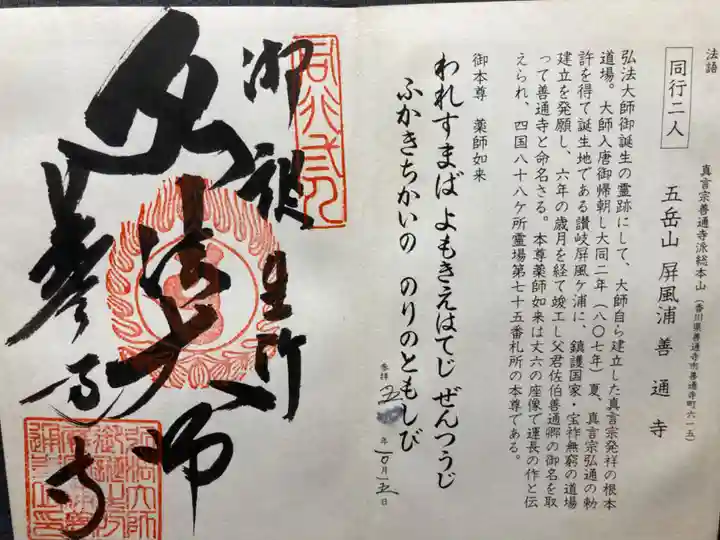 法語
同行二人
真言宗善通寺派総本山
(香川県善通寺市善通寺町六一五)
五岳山 屏風浦 善通寺
弘法大師御誕生の霊跡にして、大師自ら建立した真言宗発祥の根本
道場。大師入唐御帰朝し大同二年(八〇七年)夏、真言宗弘通の勅
許を得て誕生地である讃岐屏風ヶ浦に、鎮護国家・宝祚無窮の道場
建立を発願し、六年の歳月を経て竣工し父君佐伯善通卿の御名を取
って善通寺と命名さる。本尊薬師如来は丈六の座像で運長の作と伝
えられ、四国八十八ケ所霊場第七十五番札所の本尊である。
御本尊 薬師如来
われすまば よもきえはてじ ぜんつうじ
ふかきちかいの のりのともしび
参拝
年 月 五日
御誕生所
弘法大師
善通寺